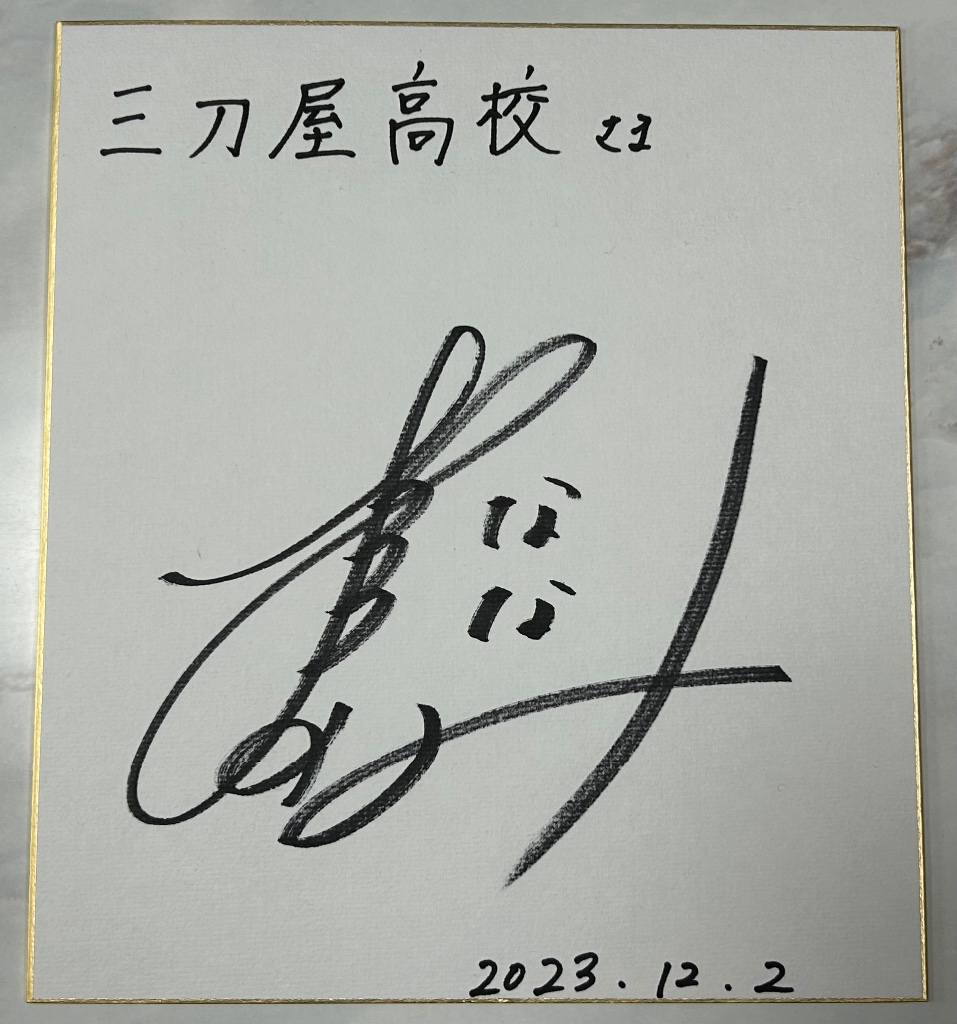 三刀屋高校さま
なな
2023.12.2